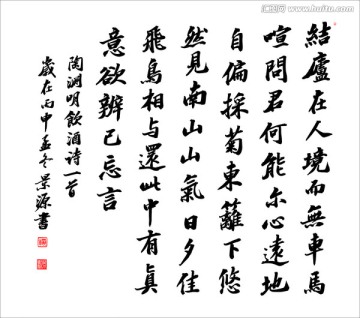 結廬在人境而無車馬
喧問君何能尔心遠地
自偏採菊東籬下悠
然見南山山氣日夕佳
飛鳥相与還此中有真
意欲辨已忘言
陶渊明飲酒诗一首
歲在丙申孟冬景源書
www.huitu.com